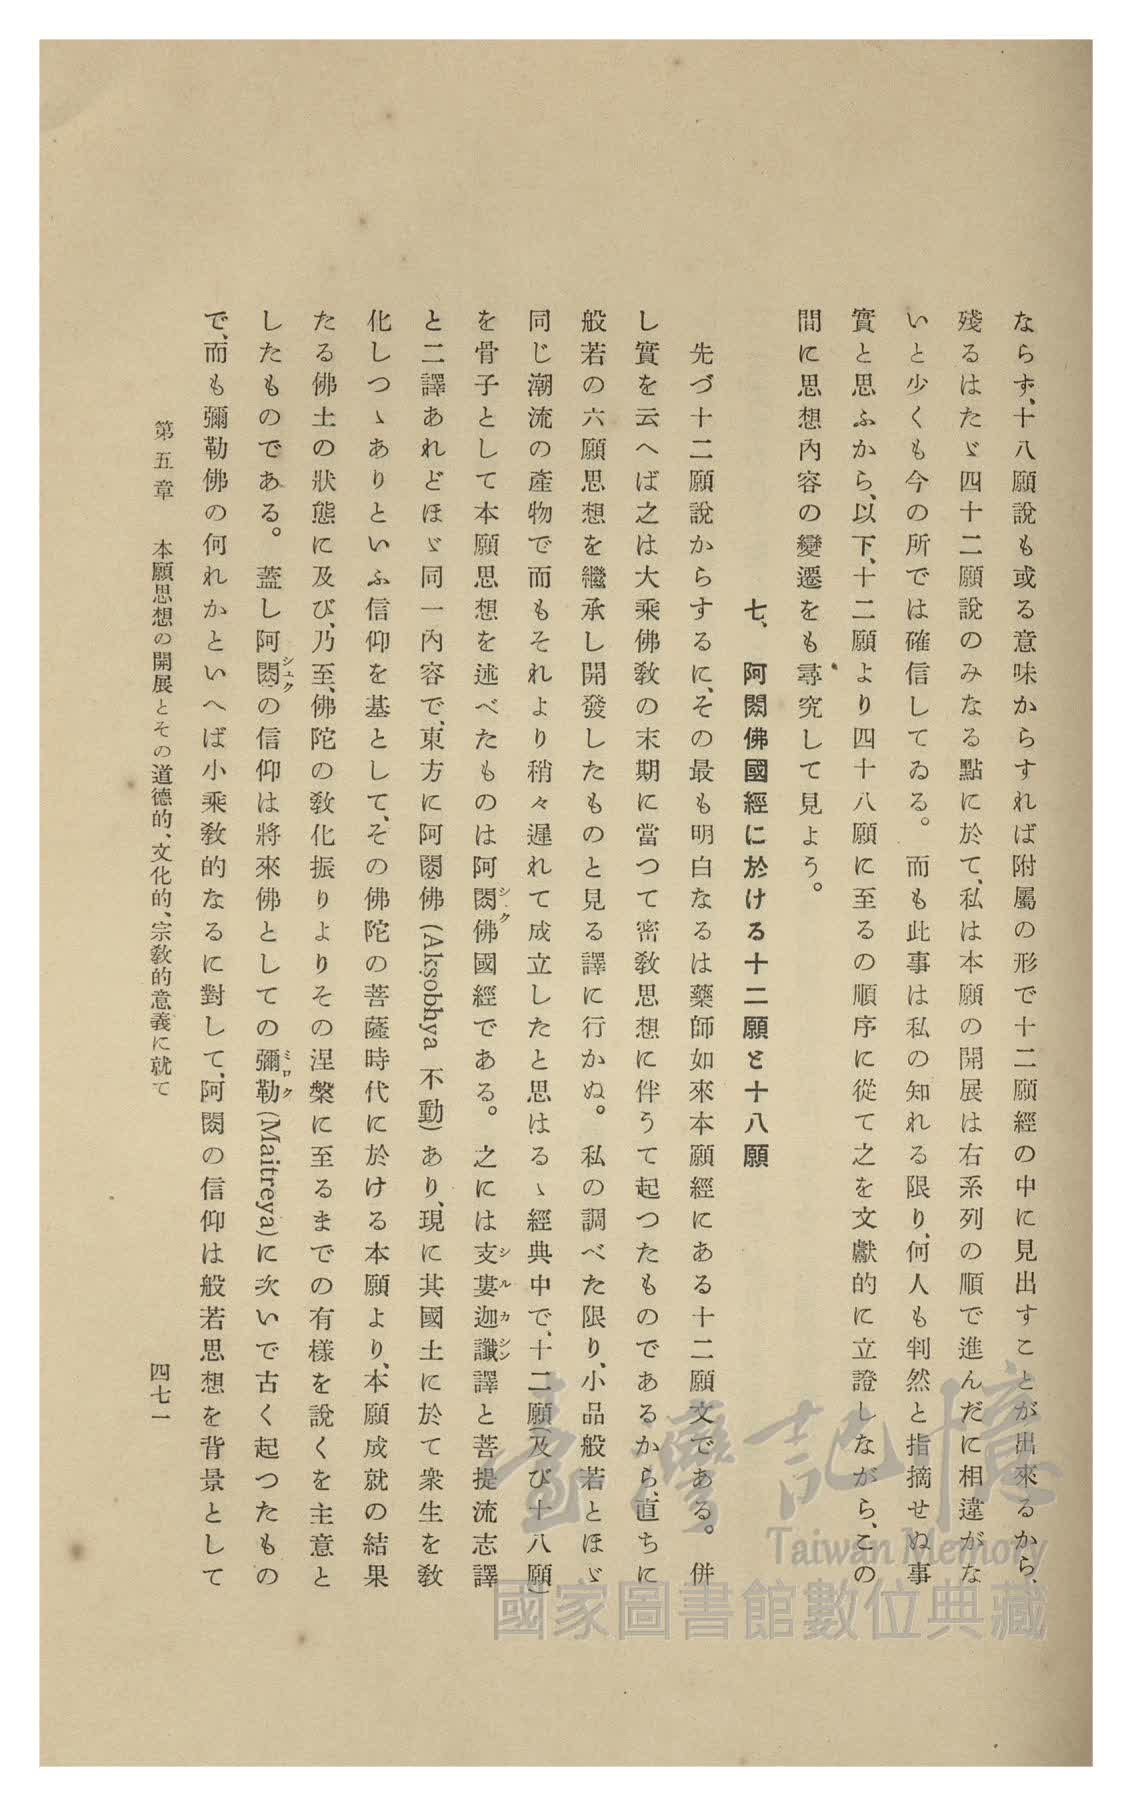 ならず、十八願說も或る意味からすれば附屬の形で十二願經の中に見出すことが出來るから、
殘るはたゞ四十二願說のみなる點に於て、私は本願の開展は右系列の順で進んだに相違がな
いと少くも今の所では確信してゐる。而も此事は私の知れる限り、何人も判然と指摘せぬ事
實と思ふから、以下、十二願より四十八願に至るの順序に從て之を文獻的に立證しながら、この
間に思想內容の變遷をも尋究して見よう。
七、阿閦佛國經に於ける十二願と十八願
先づ十二願說からするに、その最も明白なるは藥師如來本願經にある十二願文である。併
し實を云へば之は大乘佛敎の末期に當つて密敎思想に伴うて起つたものであるから、直ちに
般若の六願思想を繼承し開發したものと見る譯に行かぬ。私の調べた限り、小品般若とほゞ
同じ潮流の產物で而もそれより稍々遲れて成立したと思はるゝ經典中で、十二願(及び十八願)
を骨子として本願思想を述べたものは阿閦佛國經である。之には支婁迦讖譯と菩提流志譯
と二譯あれどほゞ同一內容で、東方に阿閦佛(Akṣobhya 不動)あり、現に其國土に於て衆生を敎
化しつゝありといふ信仰を基として、その佛陀の菩薩時代に於ける本願より、本願成就の結果
たる佛土の狀態に及び、乃至、佛陀の敎化振りよりその涅槃に至るまでの有樣を說くを主意と
したものである。蓋し阿閦の信仰は將來佛としての彌勒(Maitreya)に次いで古く起つたもの
で、而も彌勒佛の何れかといへば小乘敎的なるに對して、阿閦の信仰は般若思想を背景として
第五章 本願思想の開展とその道德的、文化的、宗敎的意義に就て
四七一
臺灣記憶
Taiwan Memory
國家圖書館數位典藏